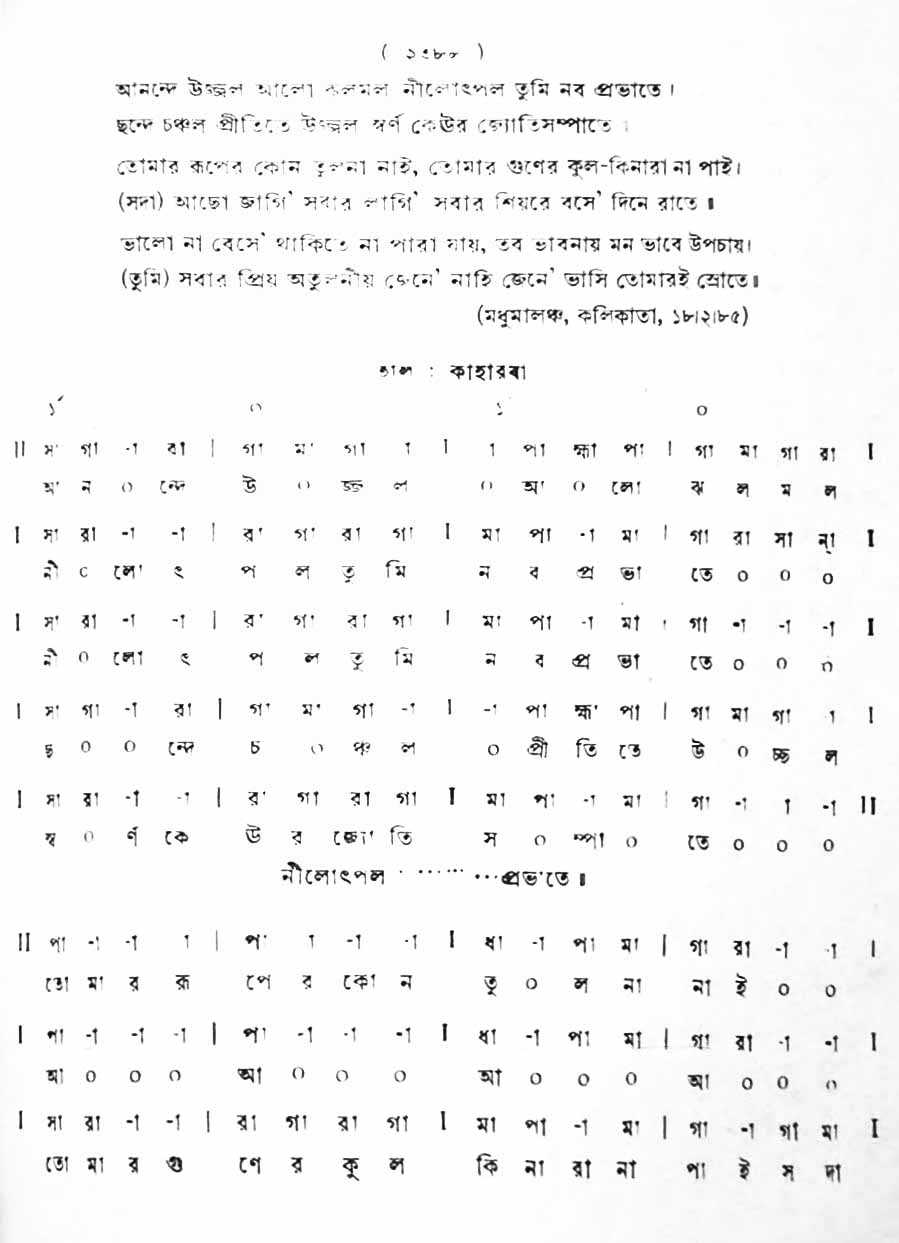 ( ২৩৮৮ )
আনন্দে উজ্জ্বল আলো ঝলমল নীলোৎপল তুমি নব প্রভাতে।
ছন্দে চঞ্চল প্রীতিতে উচ্ছল স্বর্ণ কেঊর জ্যোতিসম্পাতে।
তোমার রূপের কোন তুলনা নাই, তোমার গুণের কুল-কিনারা না পাই।
(সদা) আছো জাগি' সবার লাগি' সবার শিয়রে বসে' দিনে রাতে॥
ভালো না বেসে' থাকিতে না পারা যায়, তব ভাবনায় মন ভাবে উপচায়।
(তুমি) সবার প্রিয় অতুলনীয় জেনে' নাহি জেনে' ভাসি তোমারই স্রোতে॥
(মধুমালঞ্চ, কলিকাতা, ১৮।২।৮৫)
তাল : কাহারবা
১´ ০ ১ ০
II সা গা -া রা | গা মা গা া I া পা হ্মা পা | গা মা গা রা I
আ ন ০ ন্দে উ ০ জ্জ্বল ০ আ ০ লো ঝ ল ম ল
I সা রা -া -া | রা গা রা গা I মা পা -া মা | গা রা সা ন্া I
নী ০ লো ৎ প ল তু মি ন ব প্র ভা তে ০ ০ ০
I সা রা -া -া | রা গা রা গা I মা পা -া মা | গা -া -া -া I
নী ০ লো ৎ প ল তু মি ন ব প্র ভা তে ০ ০ ০
I সা গা -া রা | গা মা গা -া I -া পা হ্মা পা | গা মা গা া I
ছ ০ ০ ন্দে চ ০ ঞ্চ ল ০ প্রী তি তে উ ০ চ্ছ ল
I সা রা -া -া | রা গা রা গা I মা পা -া মা | গা -া া -া II
স্ব ০ র্ণ কে ঊ র জ্যো তি স ০ ম্পা ০ তে ০ ০ ০
নীলোৎপল ········· প্রভাতে॥
II পা -া -া া | পা া -া -া I ধা -া পা মা | গা রা -া -া I
তো মা র রূ পে র কো ন তু ০ ল না না ই ০ ০
I পা -া -া -া | পা -া -া -া I ধা -া পা মা | গা রা -া -া I
আ ০ ০ ০ আ ০ ০ ০ আ ০ ০ ০ আ ০ ০ ০
I সা রা -া -া | রা গা রা গা I মা পা -া মা | গা -া গা মা I
তো মা র গু ণে র কু ল কি না রা না পা ই স দা